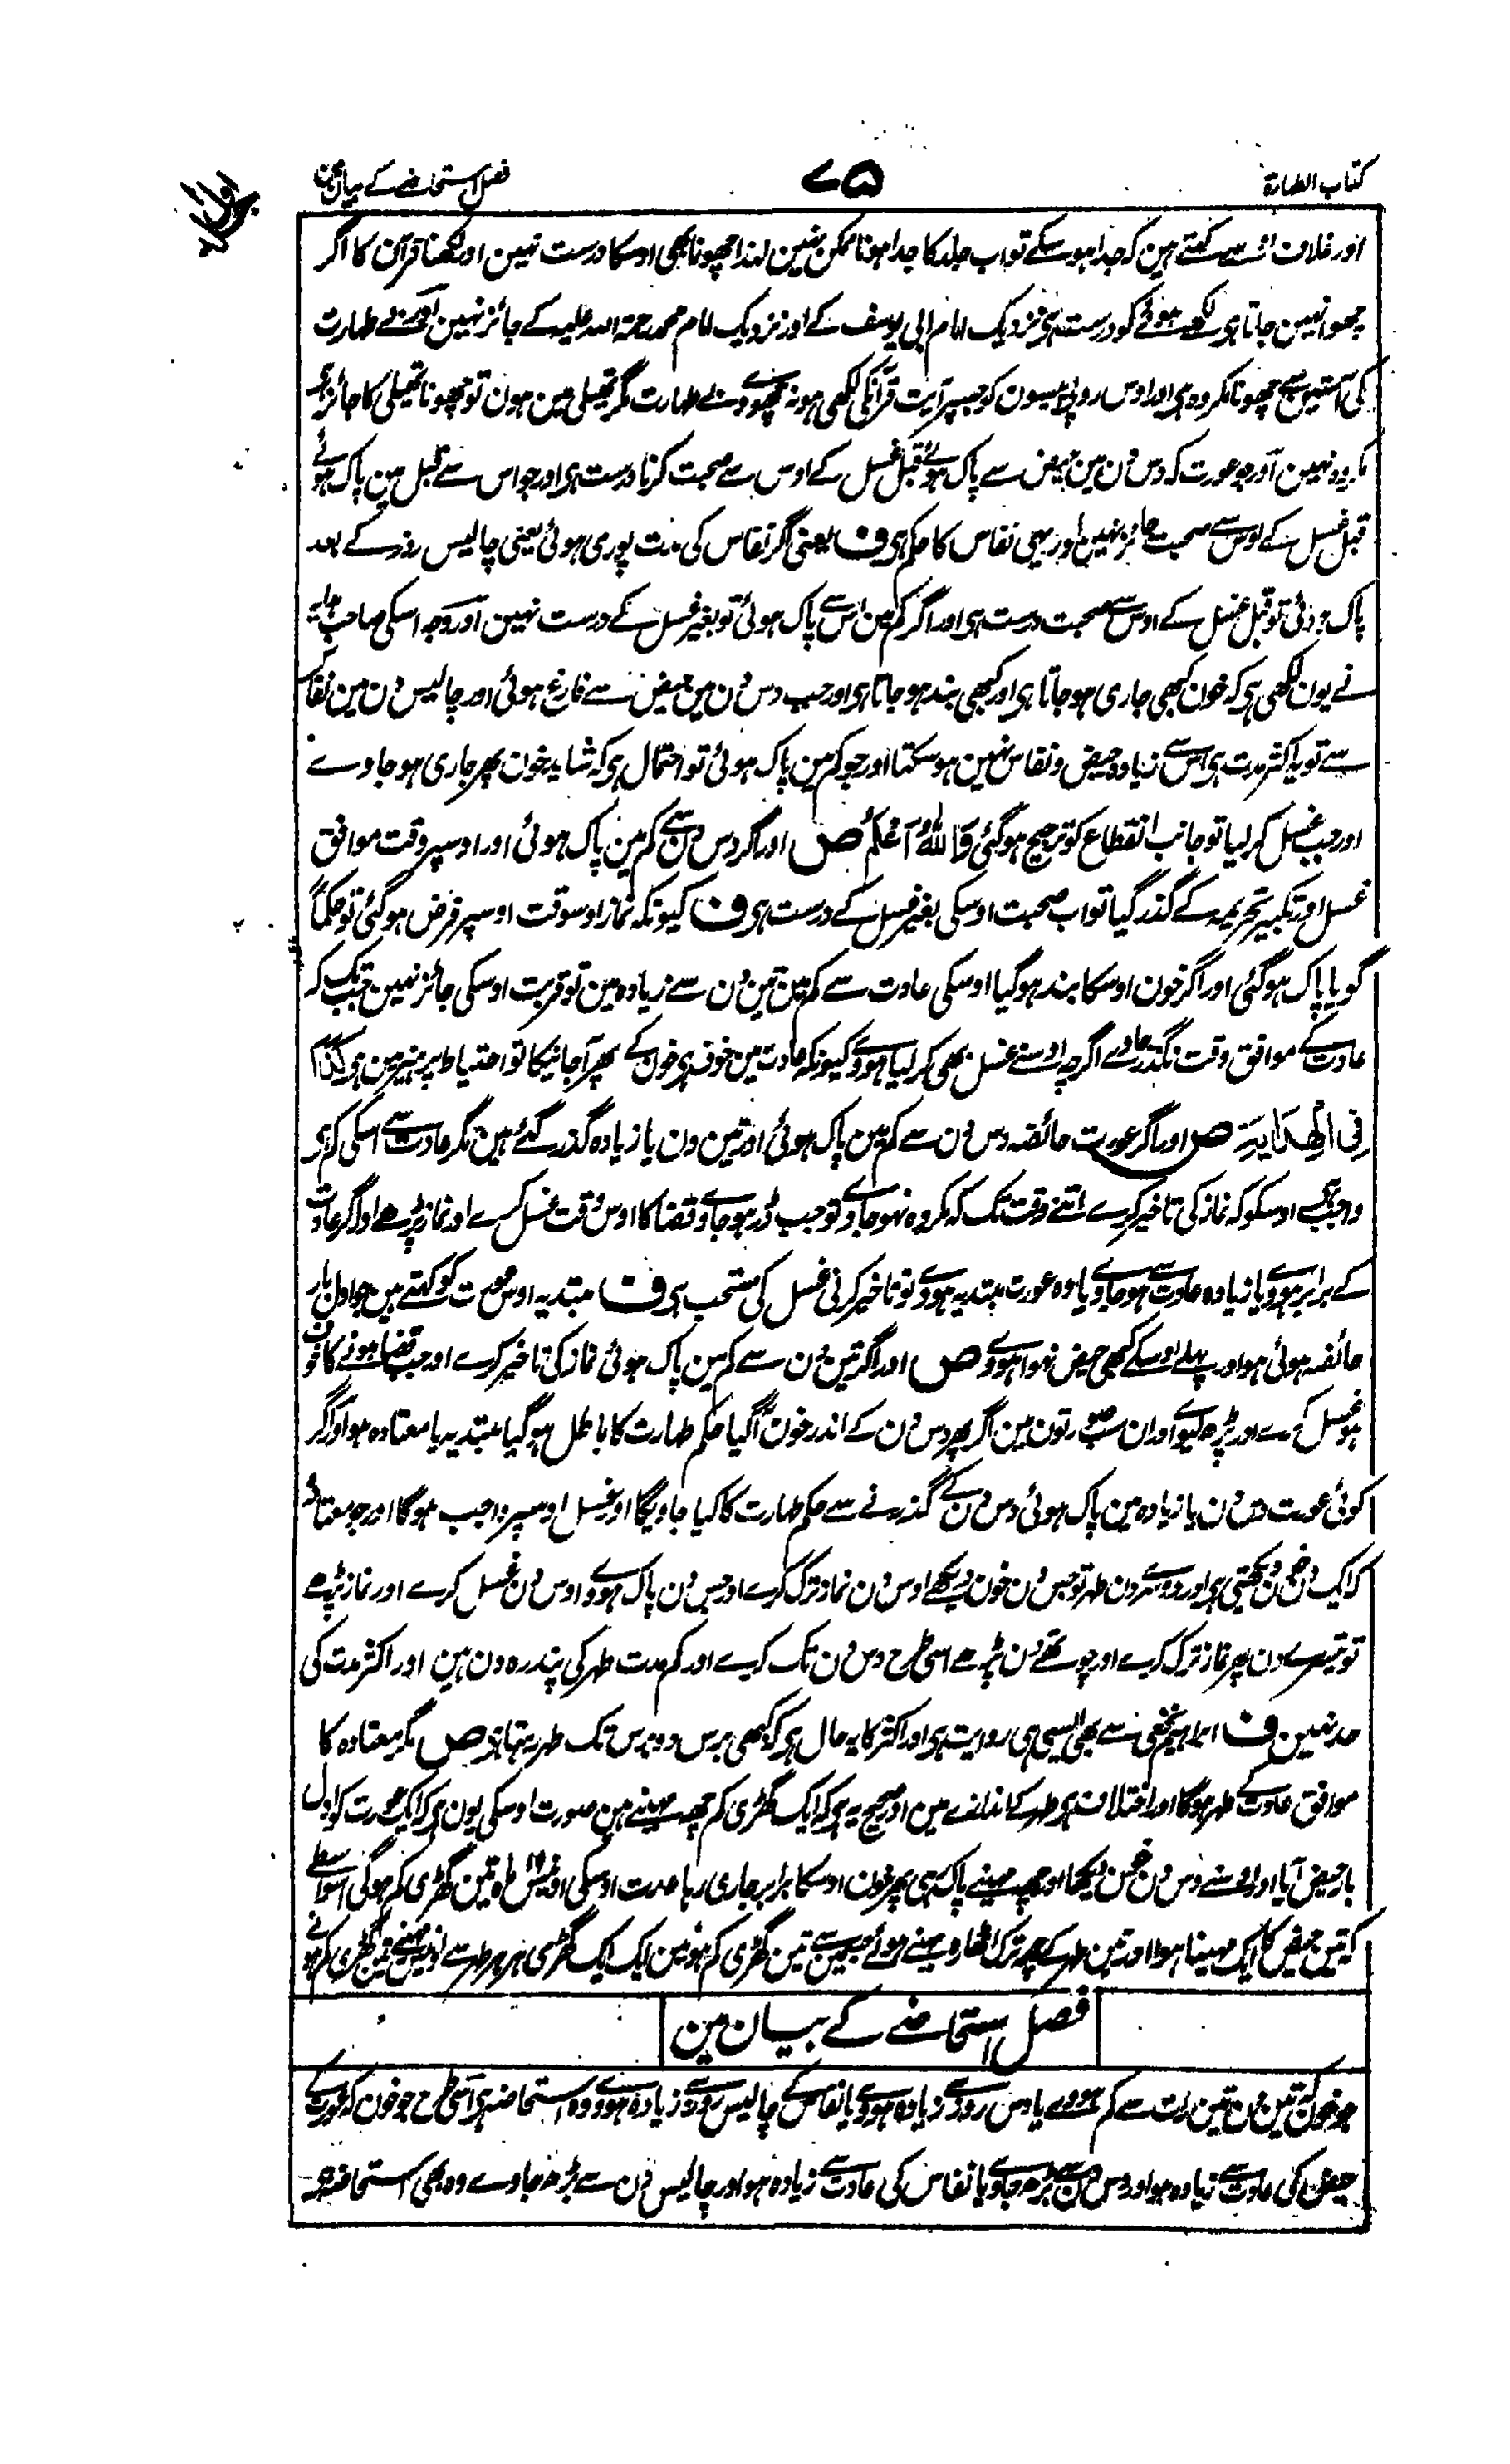 کتاب الطہارۃ
۷۵
فصل استحاضے کے بیان مین
اور غلاف اوسے کہتے ہین کہ جدا ہو سکے تو اب جلد کا جدا ہونا ممکن نہین لہذا چھونا بھی اوسکا درست نہین اور لکھنا قرآن کا اگر
چھوا نہین جاتا ہی لکھے ہوئے کو درست ہی نزدیک امام ابی یوسف کے اور نزدیک امام محمد رحمۃ اللہ علیہ کے جائز نہین اور بے طہارت
کی آستین سے چھونا مکروہ ہی اور اوس روپے پیسون کو جسپر آیت قرآنکی لکھی ہو نہ چھووے بے طہارت مگر تھیلی مین ہون تو چھونا تھیلی کا جائز ہی
مکروہ نہین اور جو عورت کہ دس دن مین حیض سے پاک ہوئے قبل غسل کے اوس سے صحبت کرنا درست ہی اور جو اس سے قبل مین پاک ہوئے
قبل غسل کے اوس سے صحبت جائز نہین اور یہی نفاس کا حکم ہی ف یعنی اگر نفاس کی مدت پوری ہوئی یعنی چالیس روز کے بعد
پاک ہوئی تو قبل غسل کے اوس سے صحبت درست ہی اور اگر کم مین اس سے پاک ہوئی تو بغیر غسل کے درست نہین اور وجہ اسکی صاحب ہدایہ
نے یون لکھی ہی کہ خون کبھی جاری ہو جاتا ہی اور کبھی بند ہو جاتا ہی اور جب دس دن مین حیض سے فارغ ہوئی اور چالیس دن مین نفاس
سے تو یہ اکثر مدت ہی اس سے زیادہ حیض و نفاس نہین ہو سکتا اور جو کم مین پاک ہوئی تو احتمال ہی کہ شاید خون پھر جاری ہو جاوے
اور جب غسل کر لیا تو جانب انقطاع کو ترجیح ہو گئی وَاللہُ اَعْلَمُ ص اور اگر دس دن سے کم مین پاک ہوئی اور اوسپر وقت موافق
غسل اور تکبیر تحریمہ کے گذر گیا تو اب صحبت اوسکی بغیر غسل کے درست ہی ف کیونکہ نماز اوسوقت اوسپر فرض ہو گئی تو حکماً
گویا پاک ہو گئی اور اگر خون اوسکا بند ہو گیا اوسکی عادت سے کم مین تین دن سے زیادہ مین تو قربت اوسکی جائز نہین جب تک کہ
عادت کے موافق وقت نگذر جاوے اگرچہ اوسنے غسل بھی کر لیا ہووے کیونکہ عادت مین خوف ہی خون کے پھر آ جانیکا تو احتیاط پرہیز مین ہی کذا
فی الہدایۃ ص اور اگر عورت حائضہ دس دن سے کم مین پاک ہوئی اور تین دن یا زیادہ گذر گئے ہین مگر عادت سے اسکی کم ہی
واجب ہے اوسکو کہ نماز کی تاخیر کرے اتنے وقت تک کہ مکروہ نہو جاوے تو جب ڈر ہو جاوے قضا کا اوس وقت غسل کرے اور نماز پڑھے اور اگر عادت
کے برابر ہووے یا زیادہ عادت سے ہو جاوے یا وہ عورت مبتدیہ ہووے تو تاخیر کرنی غسل کی مستحب ہی ف مبتدیہ اوس عورت کو کہتے ہین جو اول بار
حائضہ ہوئی ہو اور پہلے اوسکے کبھی حیض نہوا ہووے ص اور اگر تین دن سے کم مین پاک ہوئی نماز کی تاخیر کرے اور جب قضا ہونے کا خوف
ہو غسل کرے اور پڑھ لیوے اور ان سب صورتون مین اگر پھر دس دن کے اندر خون آگیا حکم طہارت کا باطل ہو گیا مبتدیہ یا معتادہ ہو اور اگر
کوئی عورت دس دن یا زیادہ مین پاک ہوئی دس دن کے گذرنے سے حکم طہارت کا کیا جاویگا اور غسل اوسپر واجب ہوگا اور جو معتادہ
کہ ایک دن خون دیکھتی ہی اور دوسرے دن طہر تو جس دن خون دیکھے اوس دن نماز ترک کرے اور جس دن پاک ہووے اوس دن غسل کرے اور نماز پڑھے
تو تیسرے دن پھر نماز ترک کرے اور چوتھے دن پڑھے اسی طرح دس دن تک کرے اور کم مدت طہر کی پندرہ دن ہین اور اکثر مدت کی
حد نہین ف ابراہیم نخعی سے بھی ایسی ہی روایت ہی اور اکثر کا یہ حال ہی کہ کبھی برس دو برس تک طہر رہتا ہی ص مگر معتادہ کا
موافق عادت کے طہر ہوگا اور اختلاف ہی طہر کے اندازے مین اور صحیح یہ ہی کہ ایک گھڑی کم چھ مہینے ہین صورت اوسکی یون ہی کہ ایک عورت کو اول
بار حیض آیا اور اوسنے دس دن خون دیکھا اور چھ مہینے پاک رہی پھر خون اوسکا برابر جاری رہا عدت اوسکی اونیس ماہ تین گھڑی کم ہوگی اسواسطے
کہ تین حیض کا ایک مہینا ہوا اور تین طہر کے چھ ترک اٹھارہ مہینے ہوئے جسمین سے تین گھڑی کم ہوئین ایک ایک گھڑی ہر ہر طہر سے اونیس مہینے تین گھڑی کم ہوئے
فصل استحاضے کے بیان مین
جو خون کہ تین دن تین رات سے کم ہووے یا دس روز سے زیادہ ہووے یا نفاس کے چالیس روز سے زیادہ ہووے وہ استحاضہ ہی اسی طرح جو خون کہ عورت کے
حیض کی عادت سے زیادہ ہو اور دس دن سے بڑھ جاوے یا نفاس کی عادت سے زیادہ ہو اور چالیس دن سے بڑھ جاوے وہ بھی استحاضہ ہی